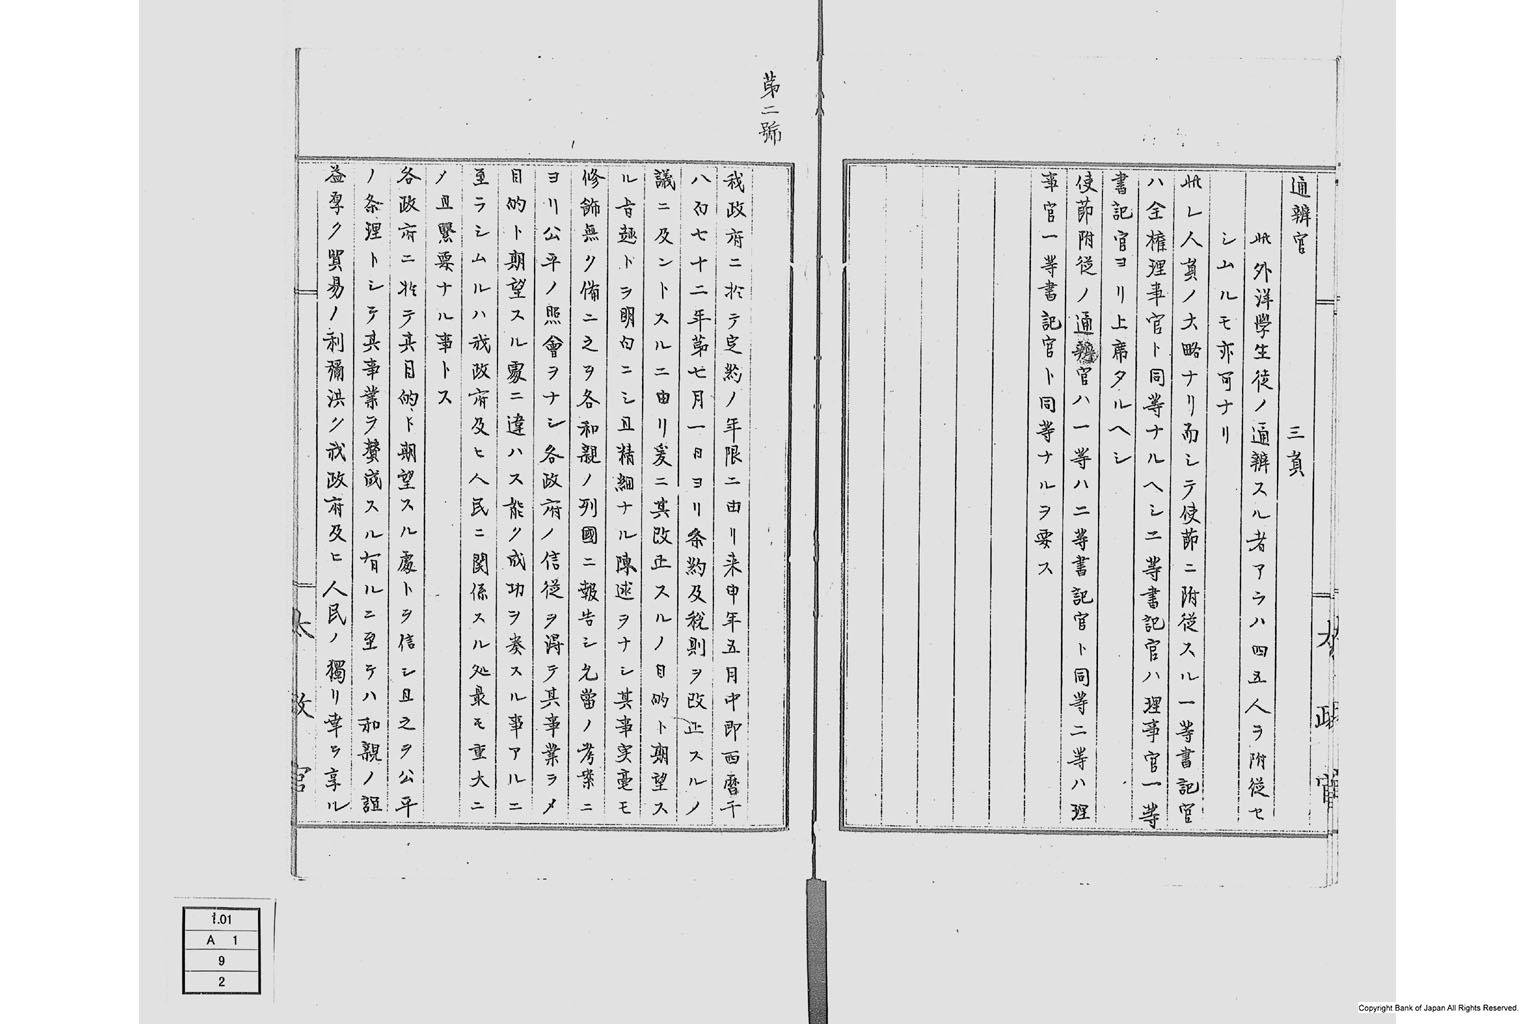 通辨官 三員
此外洋学生徒ノ通辨スル者アラハ四五人ヲ附従セ
シムルモ亦可ナリ
此レ人員ノ大略ナリ而シテ使節ニ附従スル一等書記官
ハ全権理事官ト同等ナルヘシ二等書記官ハ理事官一等
書記官ヨリ上席タルヘシ
使節附従ノ通辨官ハ一等ハ二等書記官ト同等二等ハ理
事官一等書記官ト同等ナルヲ要ス
太政官
第二號
我政府ニ於テ定約ノ年限ニ由リ来申年五月中即西暦千
八百七十二年第七月一日ヨリ条約及税則ヲ改正スルノ
議ニ及ントスルニ由リ爰ニ其改正スルノ目的ト期望ス
ル旨趣トヲ明白ニシ且精細ナル陳述ヲナシ其事実毫モ
修飾無ク備ニ之ヲ各和親ノ列國ニ報告シ允當ノ考案ニ
ヨリ公平ノ照會ヲナシ各政府ノ信従ヲ得テ其事業ヲメ
目的ト期望スル處ニ違ハス能ク成功ヲ奏スル事アルニ
至ラシムルハ我政府及ヒ人民ニ関係スル処最モ重大ニ
メ且緊要ナル事トス
各政府ニ於テ其目的ト期望スル處トヲ信シ且之ヲ公平
ノ条理トシテ其事業ヲ賛成スル有ルニ至テハ和親ノ誼
益厚ク貿易ノ利彌洪ク我政府及ヒ人民ノ獨リ幸ヲ享ル
太政官
1.01
A 1
9
2
Copyright Bank of Japan All Rights Reserved.